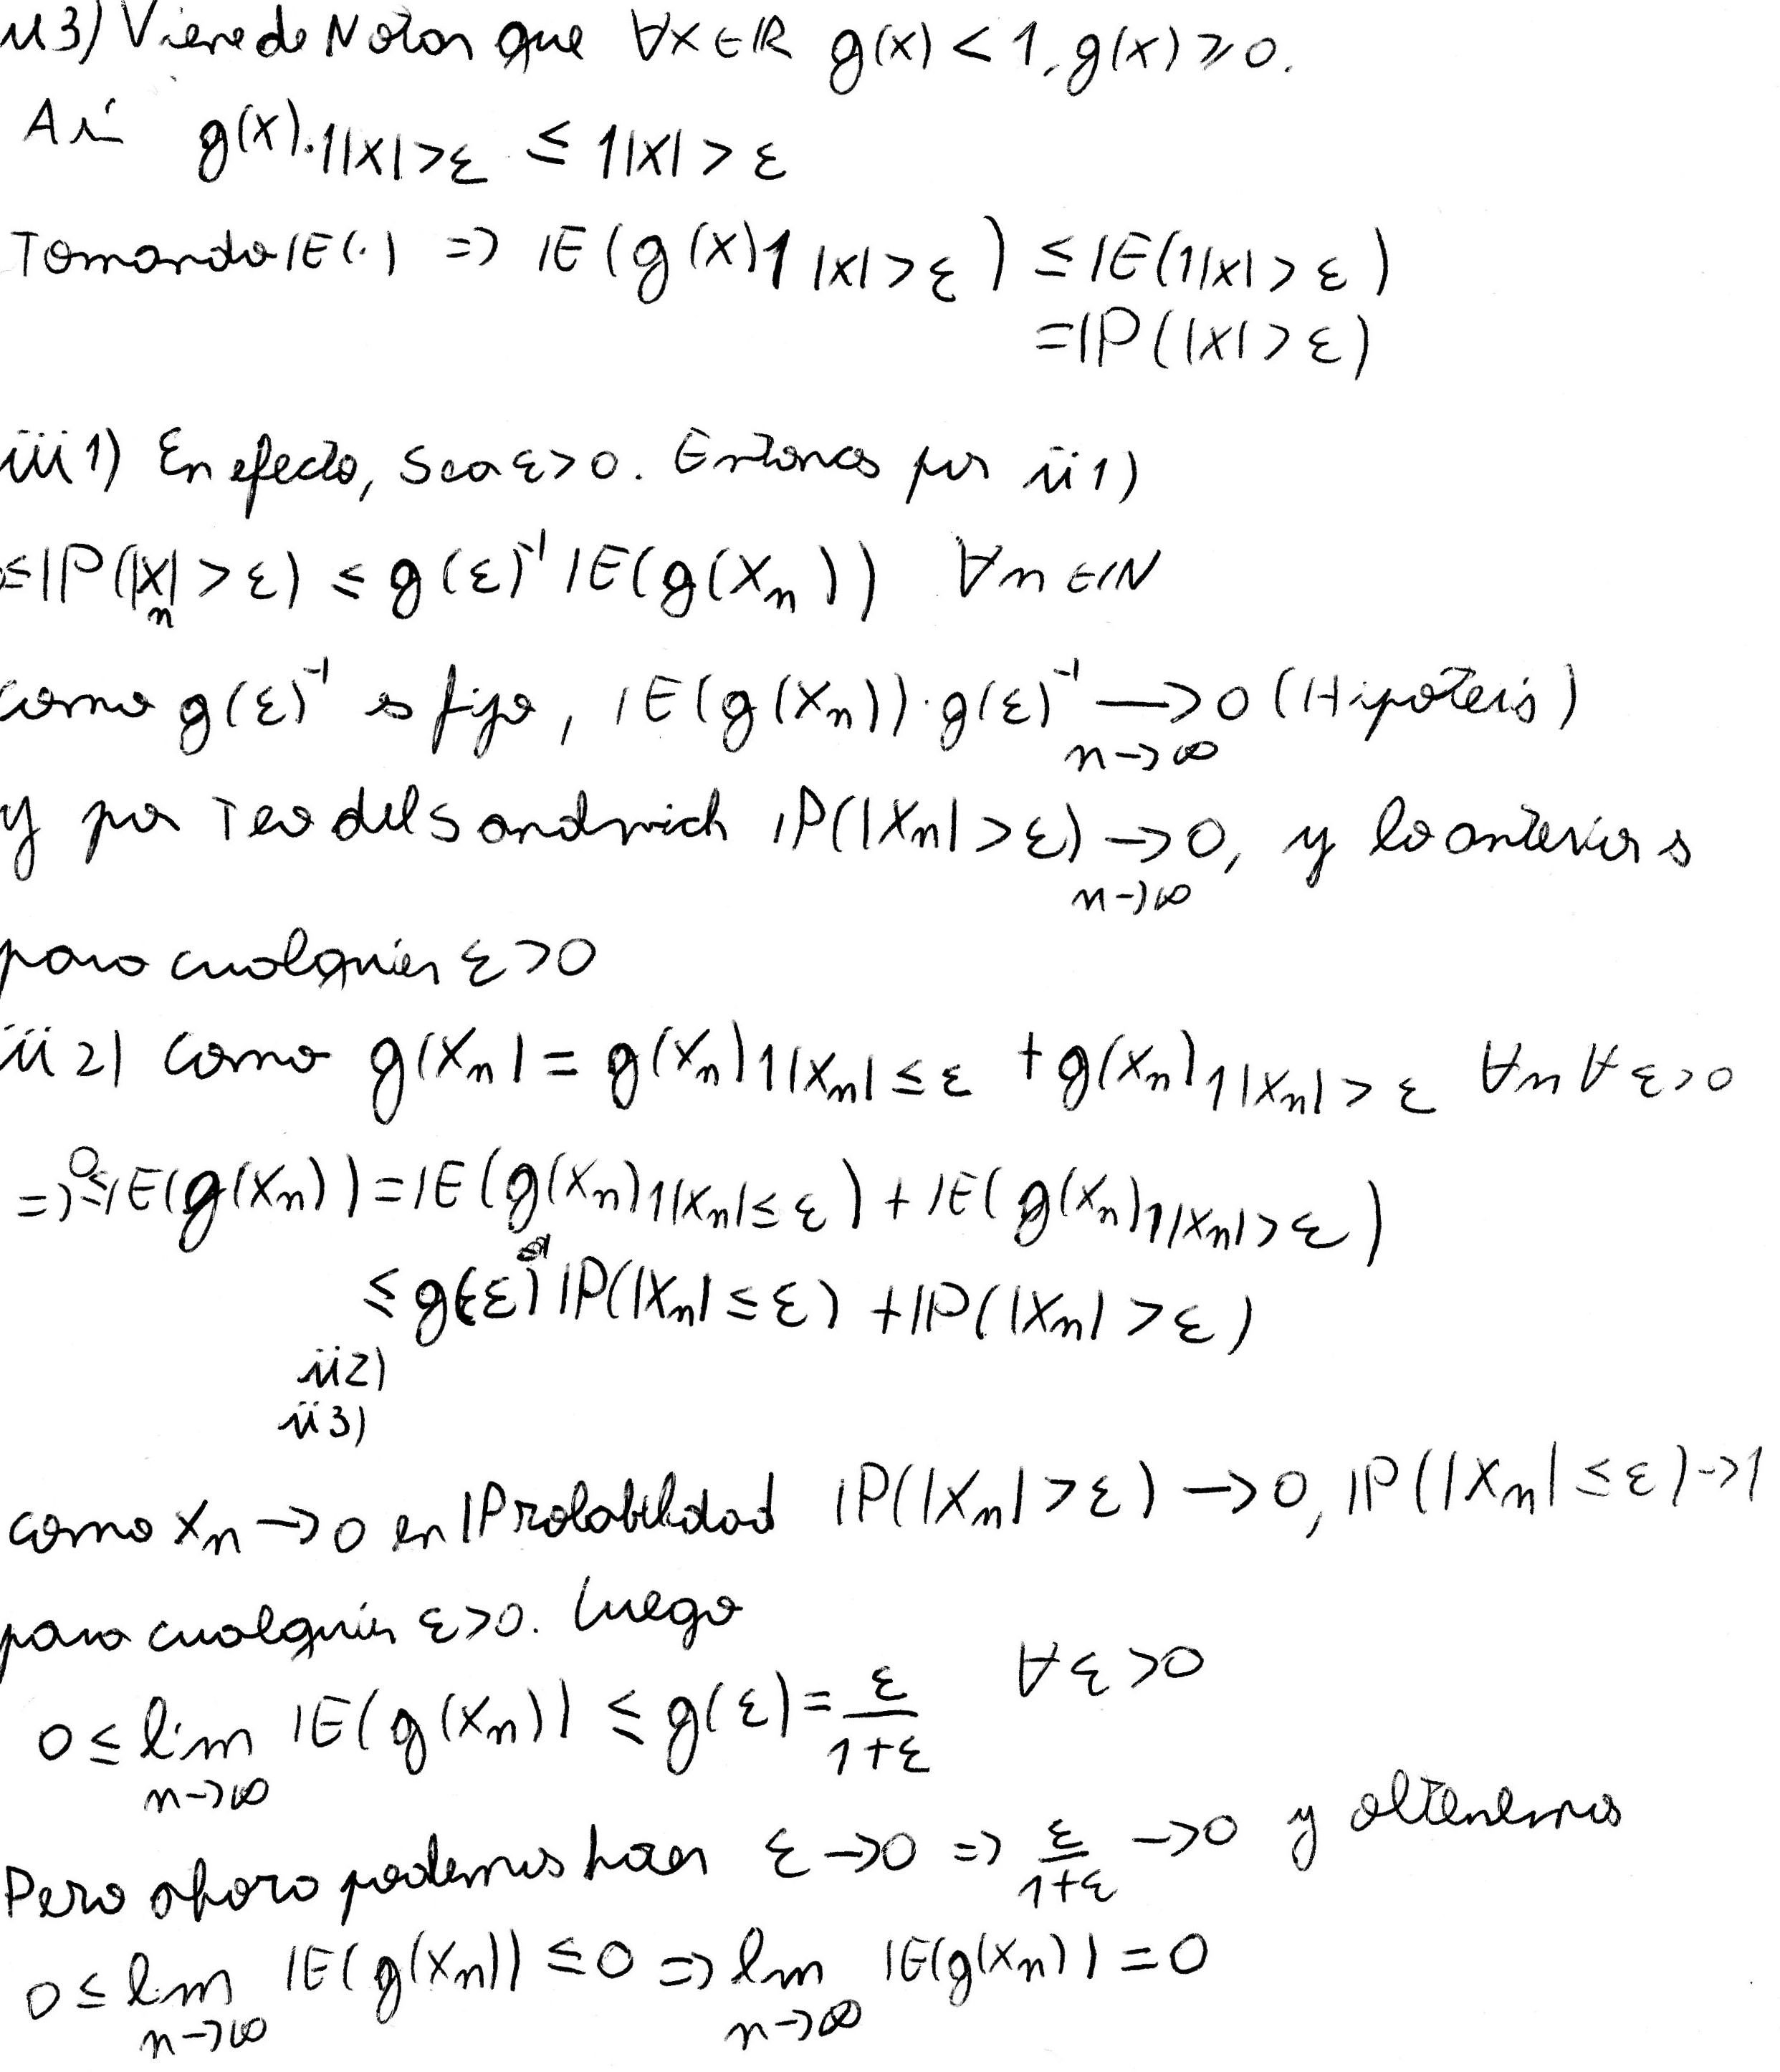 ii3) Viene de Notar que ∀x∈ℝ g(x) < 1, g(x) ≥ 0.
Así g(x).1|X|>ε ≤ 1|X|>ε
Tomando IE(·) => IE(g(X)1|X|>ε) ≤ IE(1|X|>ε)
=IP(|X|>ε)
iii1) En efecto, Sea ε>0. Entonces por ii1)
≤IP(|X_n|>ε) ≤ g(ε)^-1 IE(g(X_n)) ∀n∈IN
como g(ε)^-1 es fijo, IE(g(X_n))·g(ε)^-1 →0 (Hipótesis)
n→∞
y por Teo del Sandwich IP(|X_n|>ε) →0, y lo anterior es
n→∞
para cualquier ε>0
iii2) Como g(X_n) = g(X_n)1|X_n|≤ε +g(X_n)1|X_n|>ε ∀n∀ε>0
=> 0≤IE(g(X_n))=IE(g(X_n)1|X_n|≤ε)+IE(g(X_n)1|X_n|>ε)
≤ g(ε) IP(|X_n|≤ε) +IP(|X_n|>ε)
ii2)
ii3)
como X_n→0 en IProbabilidad IP(|X_n|>ε) →0, IP(|X_n|≤ε)→1
para cualquier ε>0. Luego
0 ≤ lím IE(g(X_n)) ≤ g(ε)= ε/(1+ε) ∀ε>0
n→∞
Pero ahora podemos hacer ε→0 => ε/(1+ε) →0 y obtenemos
0 ≤ lim IE(g(X_n)) ≤0 => lim IE(g(X_n))=0
n→∞ n→∞